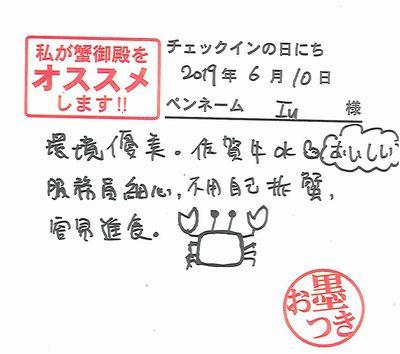 私が蟹御殿を
オススメ
します!!
チェックインの日にち
2019年 6月 10日
ペンネーム Iu 様
環境優美。佐賀牛水 おいしい
服務員細心,不用自己拆蟹,
容易進食。
お墨
つき